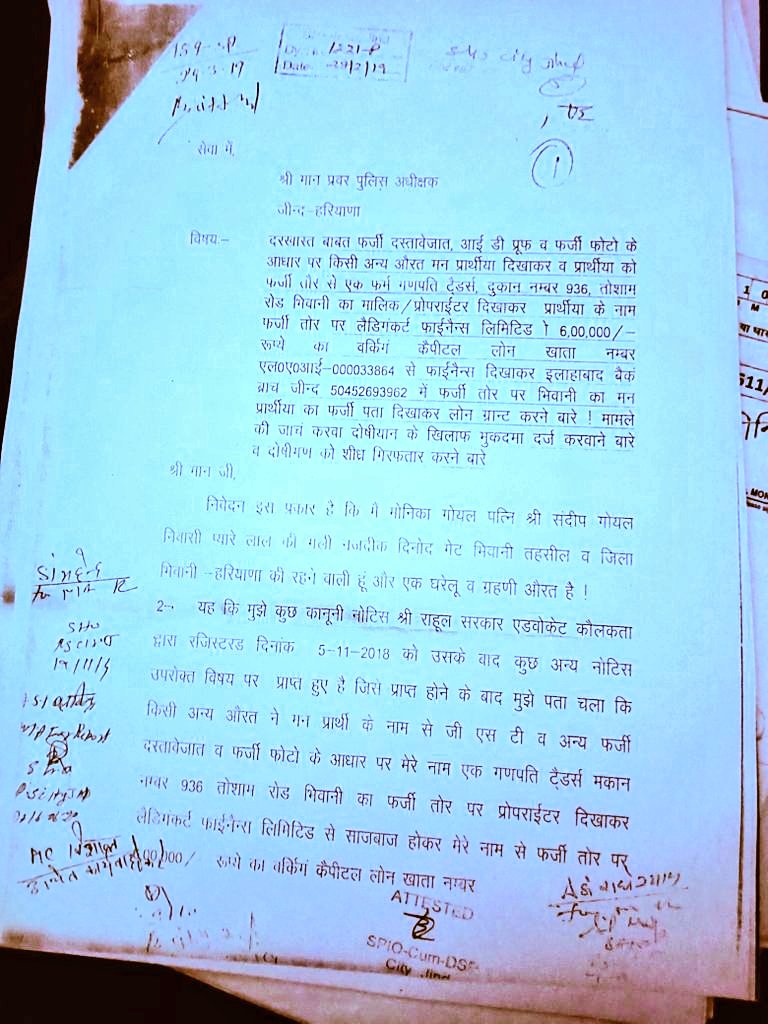 159-SP
1221-P
Date 29/2/19
SHO City Jind
1
सेवा में,
श्री मान प्रवर पुलिस अधीक्षक
जीन्द-हरियाणा
विषयः- दरखास्त बाबत फर्जी दस्तावेजात, आई डी प्रूफ व फर्जी फोटो के
आधार पर किसी अन्य औरत मन प्रार्थीया दिखाकर व प्रार्थीया को
फर्जी तौर से एक फर्म गणपति ट्रैडर्स, दुकान नम्बर 936, तोशाम
रोड भिवानी का मालिक/प्रोपराईटर दिखाकर प्रार्थीया के नाम
फर्जी तोर पर लैडिगंकर्ट फाईनैन्स लिमिटिड 6,00,000/-
रूप्ये का वर्किगं कैपीटल लोन खाता नम्बर
एल0ए0आई-000033864 से फाईनैन्स दिखाकर इलाहाबाद बैकं
ब्राच जीन्द 50452693962 में फर्जी तोर पर भिवानी का मन
प्रार्थीया का फर्जी पता दिखाकर लोन ग्रान्ट करने बारे ! मामले
की जाचं करवा दोषीयान के खिलाफ मुकदमा दर्ज करवाने बारे
व दोषीगण को शीध्र गिरफतार करने बारे
श्री मान जी,
निवेदन इस प्रकार है कि मै मोनिका गोयल पत्नि श्री संदीप गोयल
निवासी प्यारे लाल की गली नजदीक दिनोद गेट भिवानी तहसील व जिला
भिवानी -हरियाणा की रहने वाली हूं और एक घरेलू व ग्रहणी औरत है !
2- यह कि मुझे कुछ कानूनी नोटिस श्री राहूल सरकार एडवोकेट कौलकता
द्वारा रजिस्टरड दिनाकं 5-11-2018 को उसके बाद कुछ अन्य नोटिस
उपरोक्त विषय पर प्राप्त हुए है जिसे प्राप्त होने के बाद मुझे पता चला कि
किसी अन्य औरत ने मन प्रार्थी के नाम से जी एस टी व अन्य फर्जी
दस्तावेजात व फर्जी फोटो के आधार पर मेरे नाम एक गणपति ट्रैडर्स मकान
नम्बर 936 तोशाम रोड भिवानी का फर्जी तोर पर प्रोपराईटर दिखाकर
लैडिगंकर्ट फाईनैन्स लिमिटिड से साजबाज होकर मेरे नाम से फर्जी तोर पर
00,000/ रूप्ये का वर्किगं कैपीटल लोन खाता नम्बर
SHO
ATTESTED
SPIO-Cum-DSP
City Jind